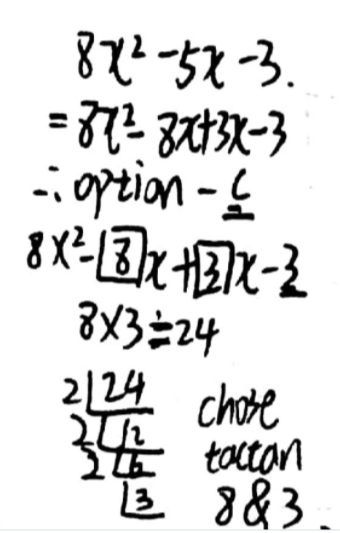 8x² -5x -3.
= 8x² - 8x+3x-3
∴ option - C
8x²-8x+3x-3
8×3=24
2|24
2|12
2|6
|3
chose
8&3